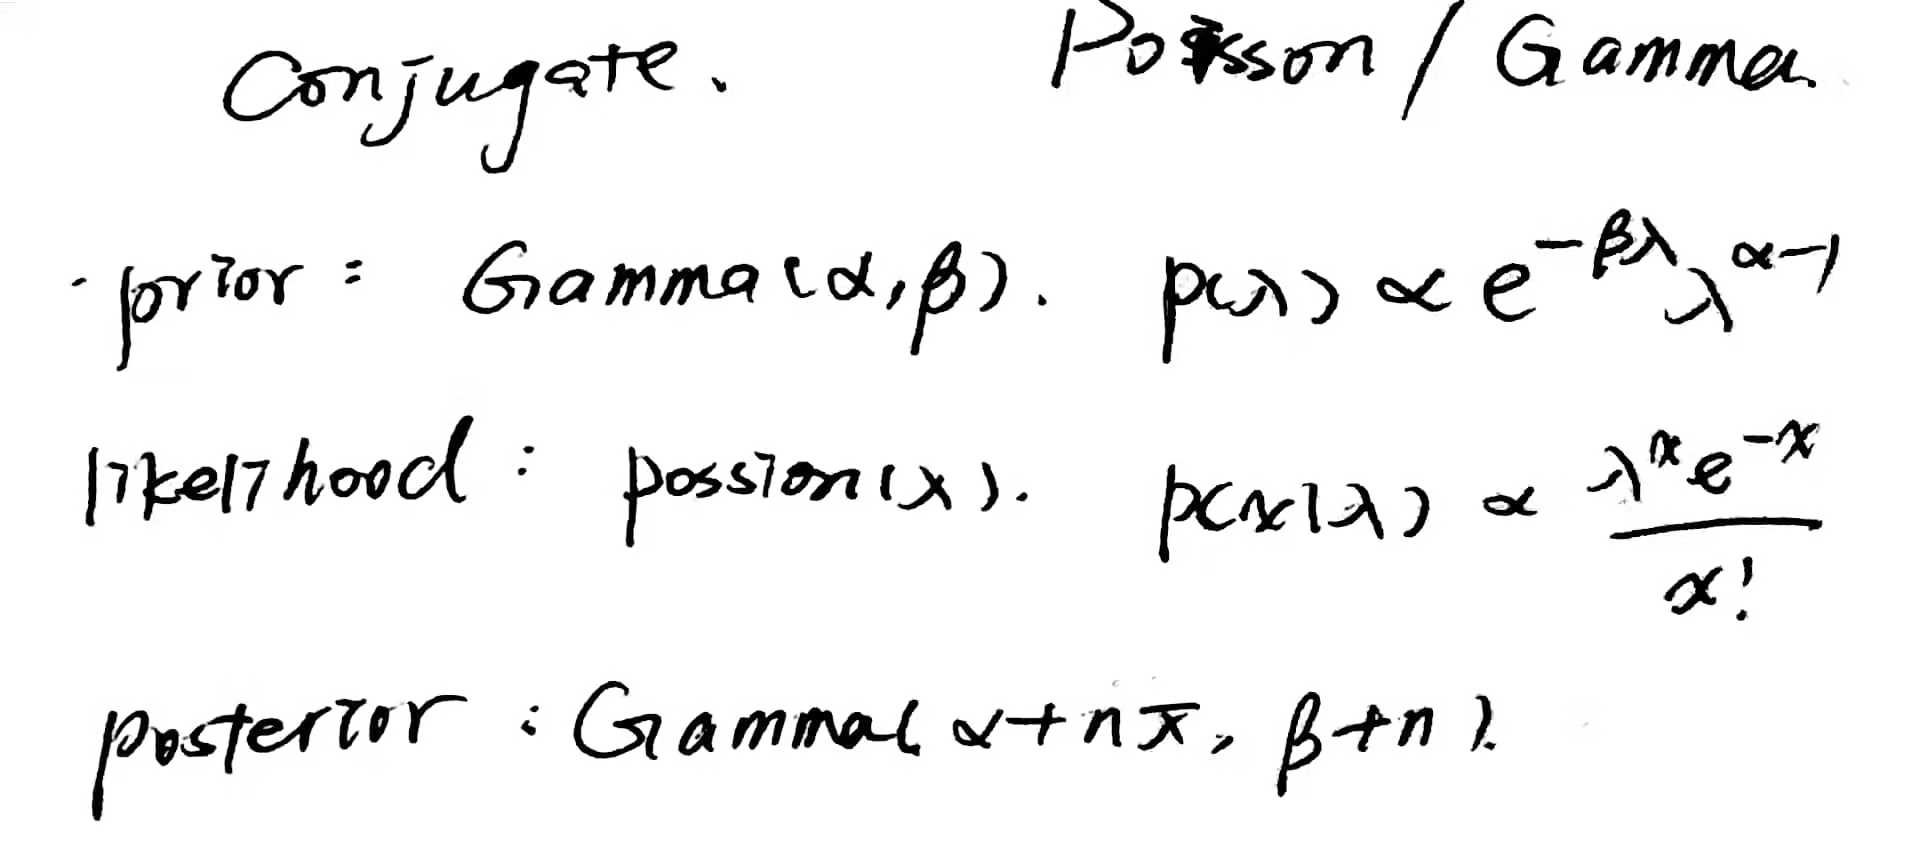 Conjugate. Poisson / Gamma
prior: Gamma(α,β). p(λ) ∝ e^{-βλ} λ^{α-1}
likelihood: possion(λ). p(x|λ) ∝ λ^x e^{-x} / x!
posterior: Gamma(α+nx̄, β+n).